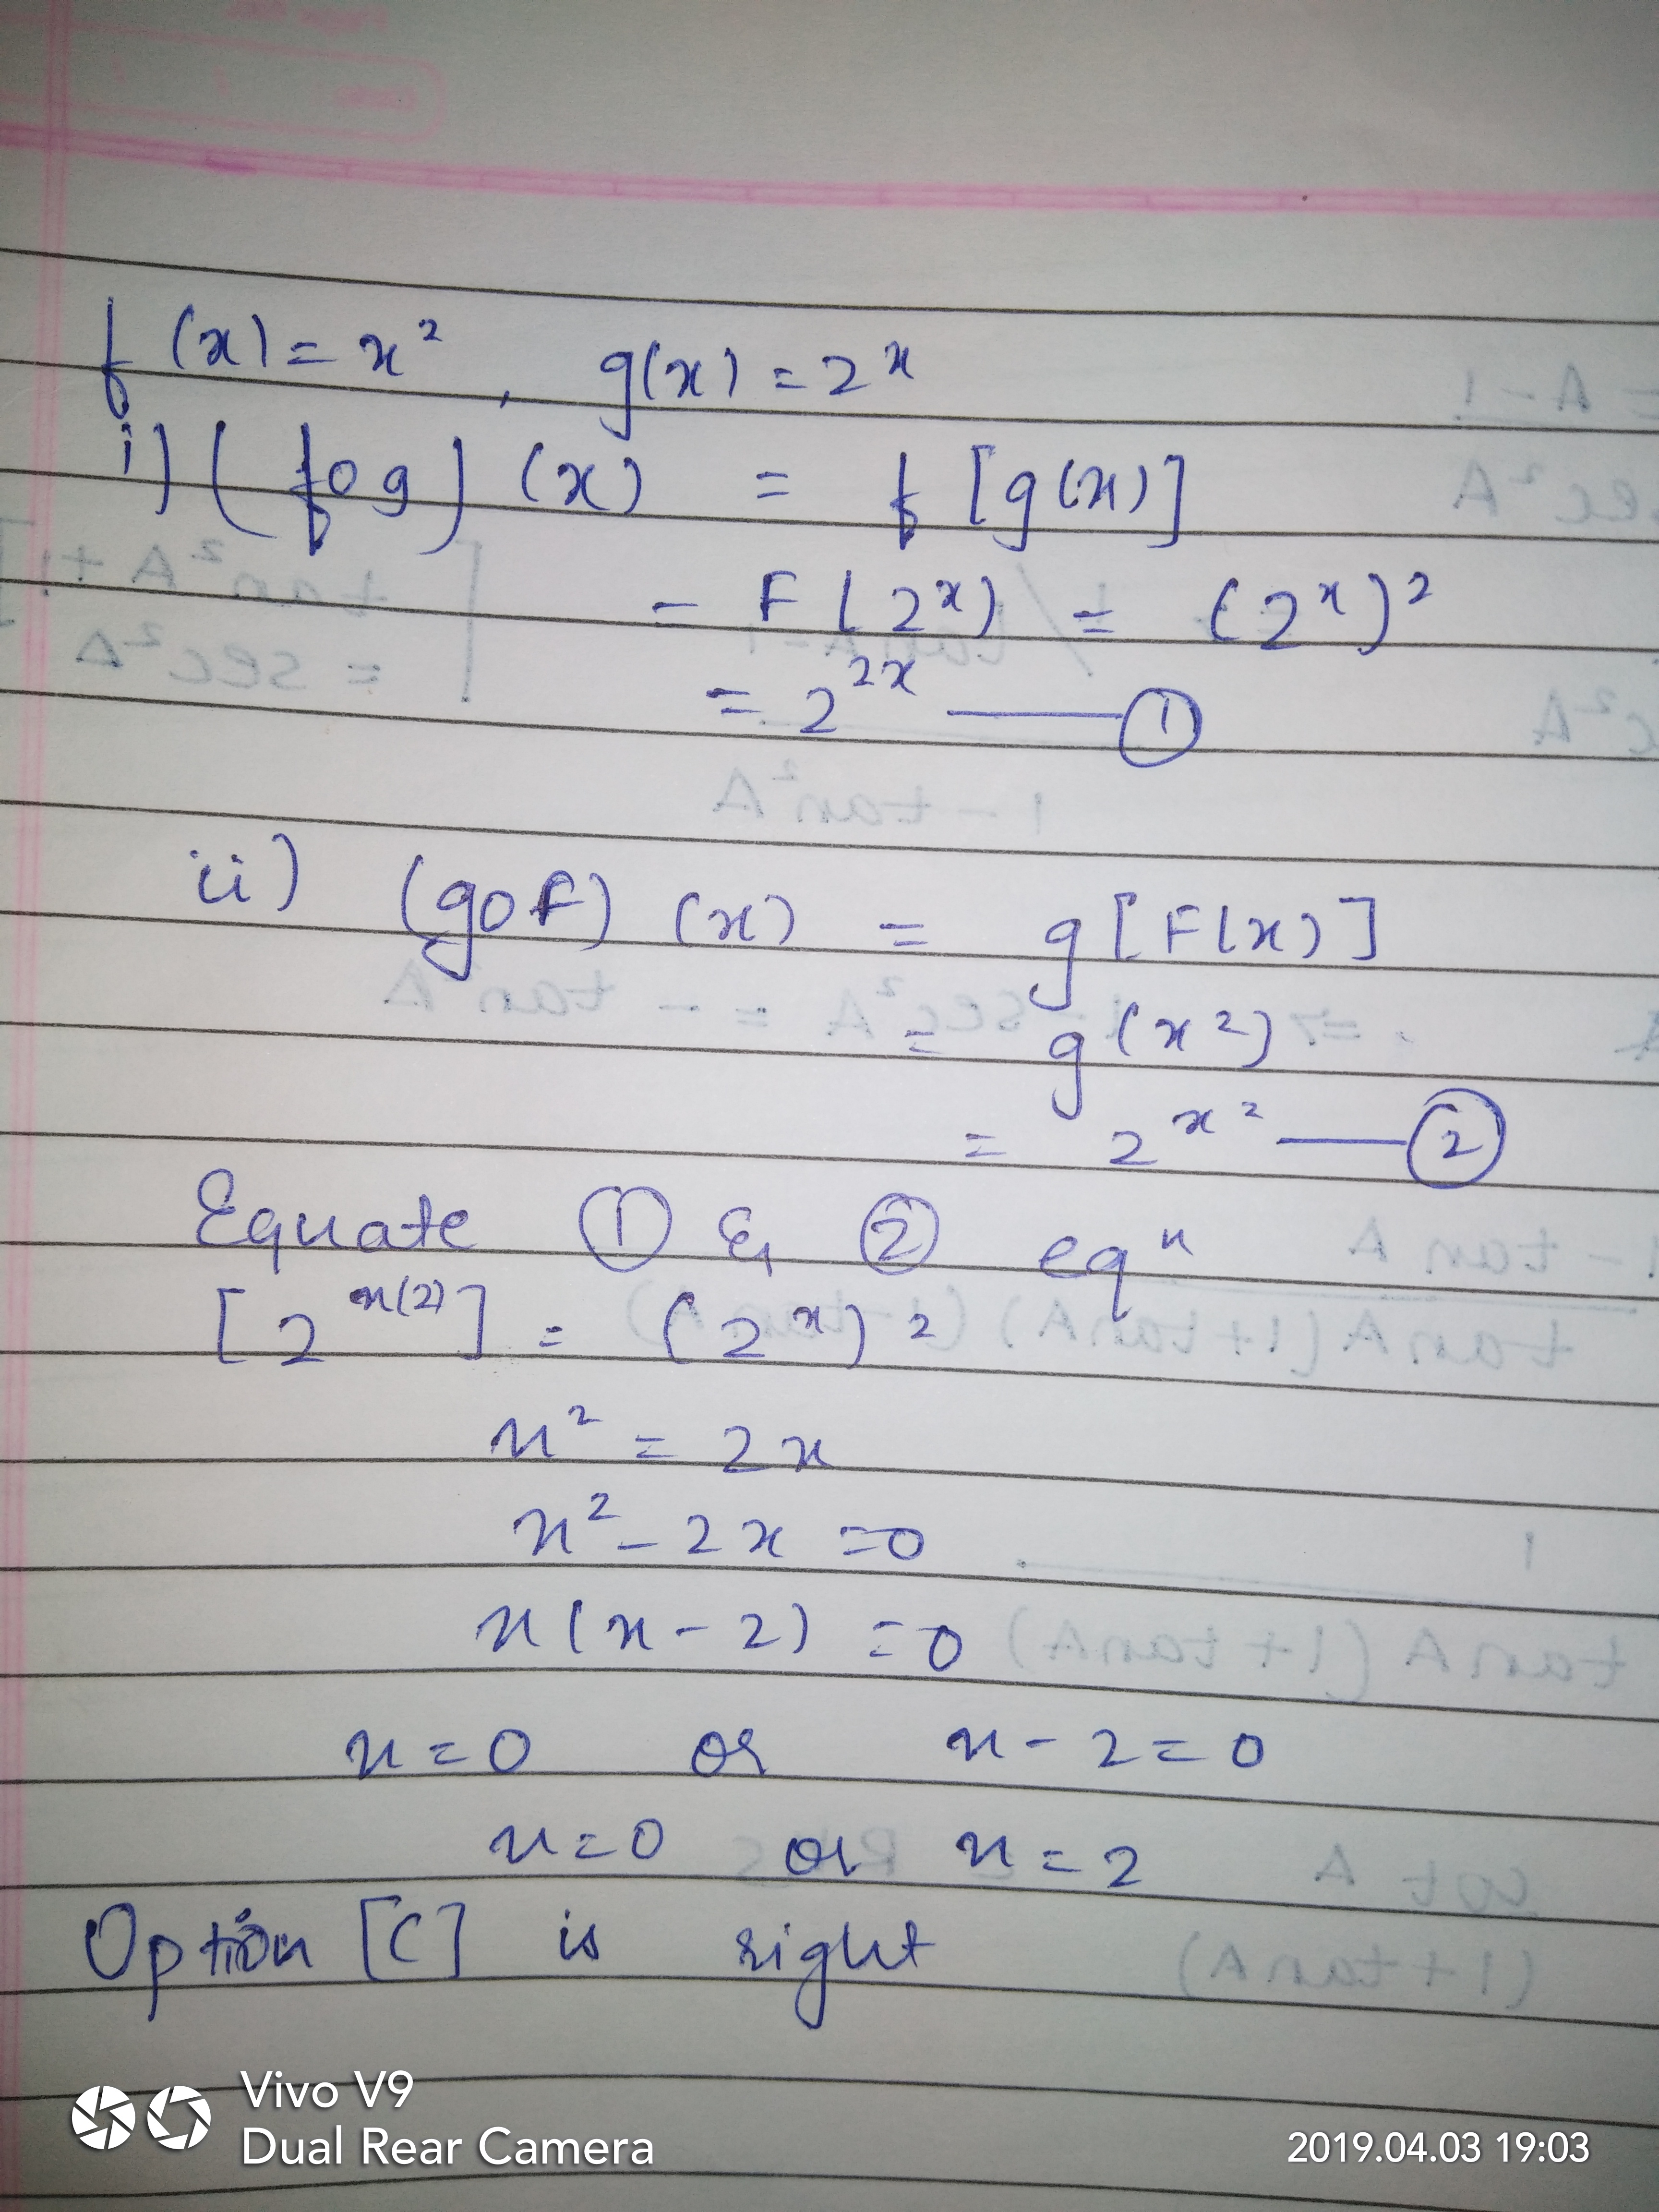 f(x) = x², g(x) = 2ˣ
i) (fog) (x) = f [g(x)]
= F(2ˣ) = (2ˣ)²
= 2²ˣ —— ①
ii) (goF) (x) = g[F(x)]
= g(x²)
= 2^x² —— ②
Equate ① & ② eqⁿ
[2^x(2)] = (2ˣ)²
x² = 2x
x² - 2x = 0
x(x-2) = 0
x = 0 or x - 2 = 0
x = 0 or x = 2
Option [C] is right
Vivo V9
Dual Rear Camera
2019.04.03 19:03